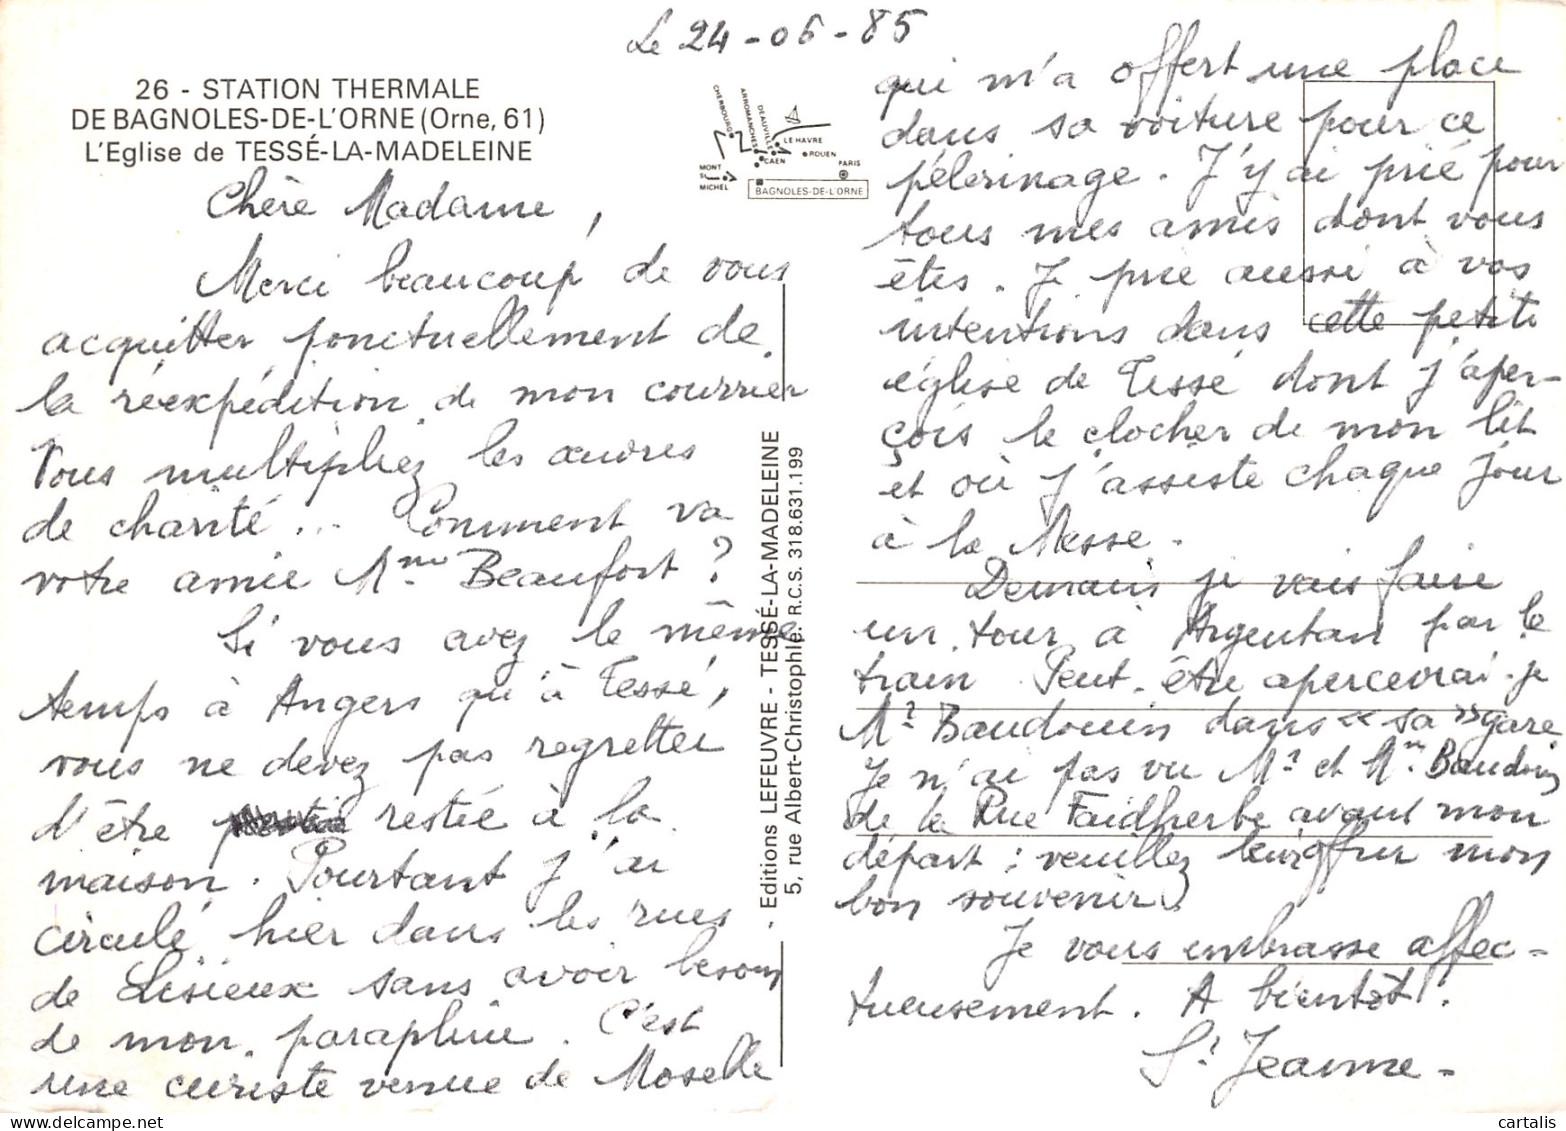 Le 24-06-85
26 - STATION THERMALE
DE BAGNOLES-DE-L'ORNE (Orne, 61)
L'Eglise de TESSÉ-LA-MADELEINE
CHERBOURG
ARROMANCHES
DEAUVILLE
LE HAVRE
CAEN
ROUEN
PARIS
MONT
ST
MICHEL
BAGNOLES-DE-L'ORNE
Chère Madame,
Merci beaucoup de vous
acquitter ponctuellement de
la réexpédition de mon courrier
Vous multipliez les œuvres
de charité... Comment va
votre amie Mme Beaufort ?
Si vous avez le même
temps à Angers qu'à Tessé,
vous ne devez pas regretter
d'être restée à la
maison. Pourtant j'ai
circulé hier dans les rues
de Lisieux sans avoir besoin
de mon parapluie. C'est
une curiste venue de Moselle
Editions LEFEUVRE - TESSÉ-LA-MADELEINE
5, rue Albert-Christophle. R.C.S. 318.631.199
qui m'a offert une place
dans sa voiture pour ce
pélerinage. J'y ai prié pour
tous mes amis dont vous
êtes. Je prie aussi à vos
intentions dans cette petite
église de Tessé dont j'aper-
çois le clocher de mon lit
et où j'assiste chaque jour
à la Messe.
Demain je vais faire
un tour à Argentan par le
train. Peut-être apercevrai-je
Mr Baudouin dans « sa » gare
Je n'ai pas vu Mr et Mme Baudoin
de la Rue Faidherbe avant mon
départ : veuillez leur offrir mon
bon souvenir.
Je vous embrasse affec-
tueusement. A bientôt.
Sr Jeanne-
cartalis